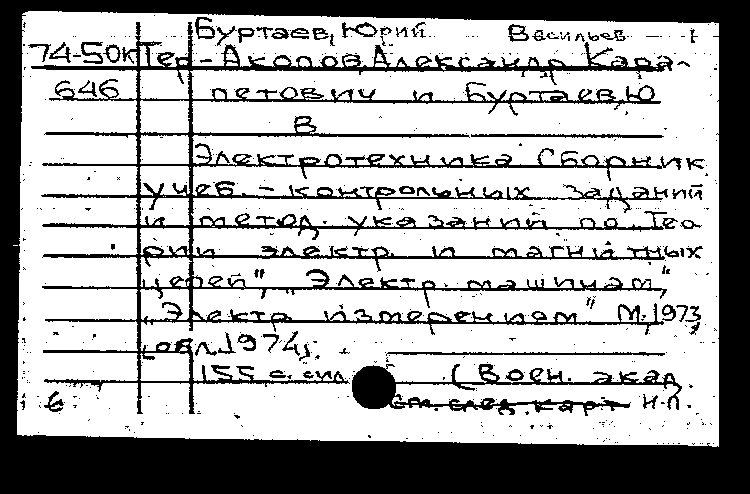 Буртаев, Юрий Васильев
74-50к Тер-Акопов, Александр Кара-
646 петович и Буртаев, Ю
В
Электротехника Сборник
учеб.-контрольных заданий
и метод. указаний по „Тео
рии электр. и магнитных
цепей", „Электр. машинам",
„Электр измерениям" М., 1973,
[обл. 1974].
155 с. с ил. (Воен. акад.
6 См. след. карт Н.П.